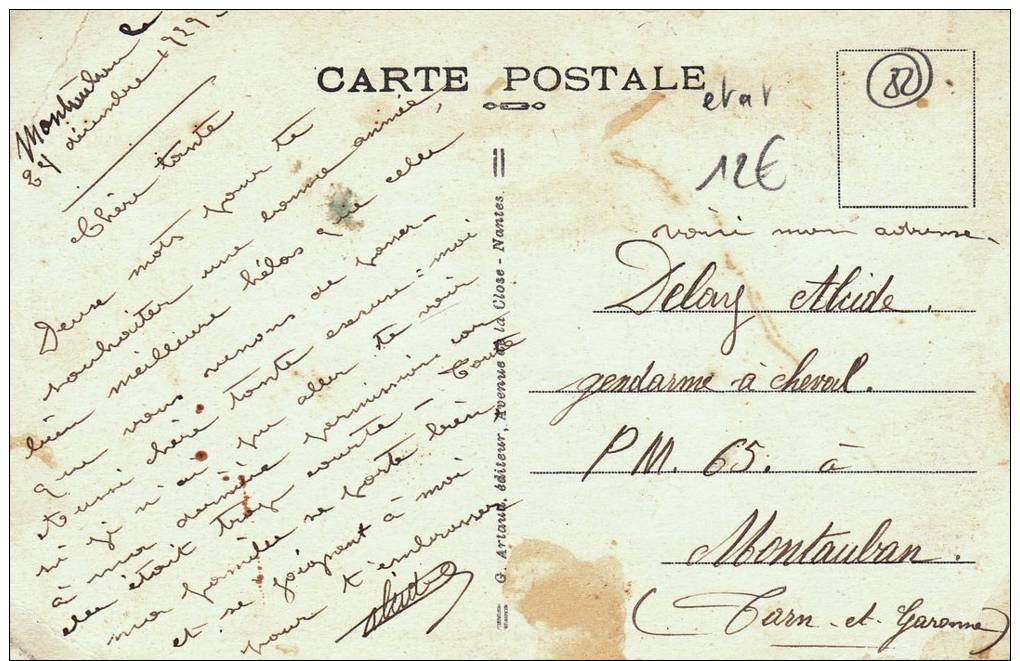 Montauban le
27 décembre 1929
Chère tante
Deux mots pour te
souhaiter une bonne année,
bien meilleure hélas que celle
que nous venons de passer
et aussi chère tante excuse-moi
si je n'ai pu aller te voir
à ma dernière permission car
elle était trop courte - Toute
ma famille se porte bien
et se joignent à moi
pour t'embrasser
CARTE POSTALE
G. Artaud, éditeur, Avenue de la Close - Nantes
etat
12€
82
voici mon adresse.
Alcide
gendarme à cheval.
P M. 65. à
Montauban.
(Tarn-et-Garonne)